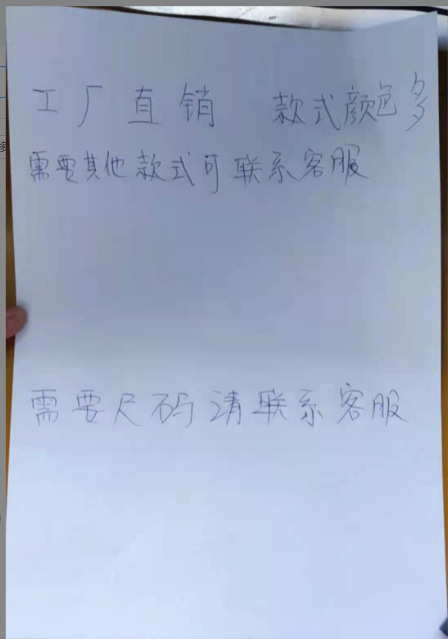 工厂直销 款式颜色多
需要其他款式可联系客服
需要尺码请联系客服